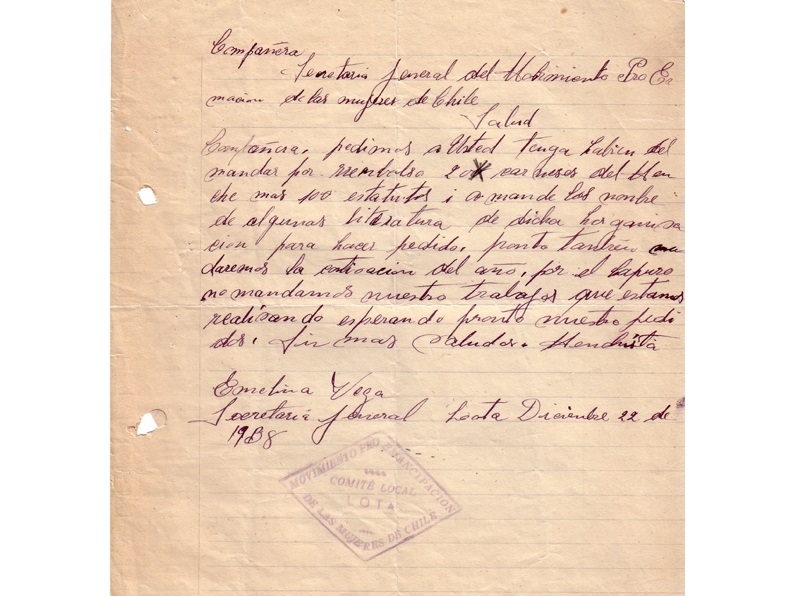 Compañera
Secretaria Jeneral del Mobimiento Pro Em
nacion de las mujeres de Chile
Salud
Compañera, pedimos a Usted tenga habien del
mandar por rrembolso 20 carneses del Men
che mas 100 estatutos i a mande los nombre
de algunas literatura de dicha horganisa
cion para hacer pedido, pronto tambien man
daremos la del año, por el hapuro
no mandamos nuestro trabajos que estamos
realisando esperando pronto nuestro pedi
dos. Sin mas saludos. Menchista
Emelina Vega
Secretaria Jeneral Loota Diciembre 22 de
1938
MOVIMIENTO PRO EMANCIPACION
COMITÉ LOCAL
LOTA
DE LAS MUJERES DE CHILE